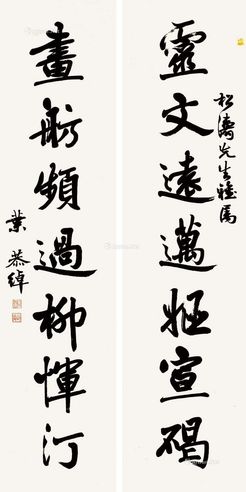 松濤先生雅屬
靈文遠邁姬宣碣
畫舫頻過柳惲汀
葉恭綽